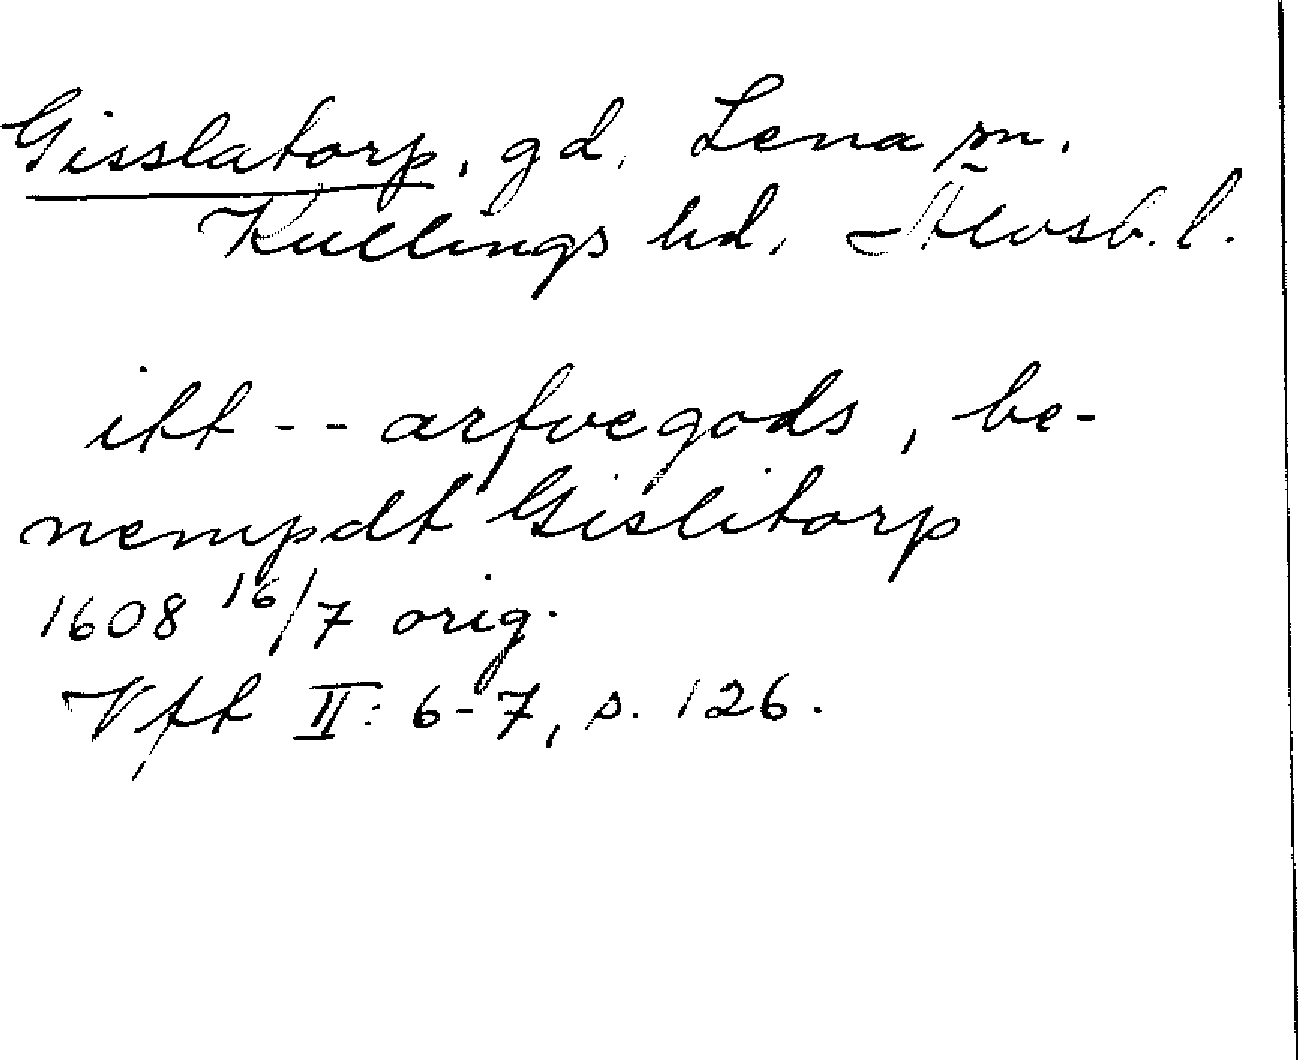 Gisslatorp, gd, Lena sn.
Kullings hd, Älvsb. l.
itt -- arfvegods, be-
nempdt Gislitorp
1608 16/7 orig.
Vfft II: 6-7, s. 126.